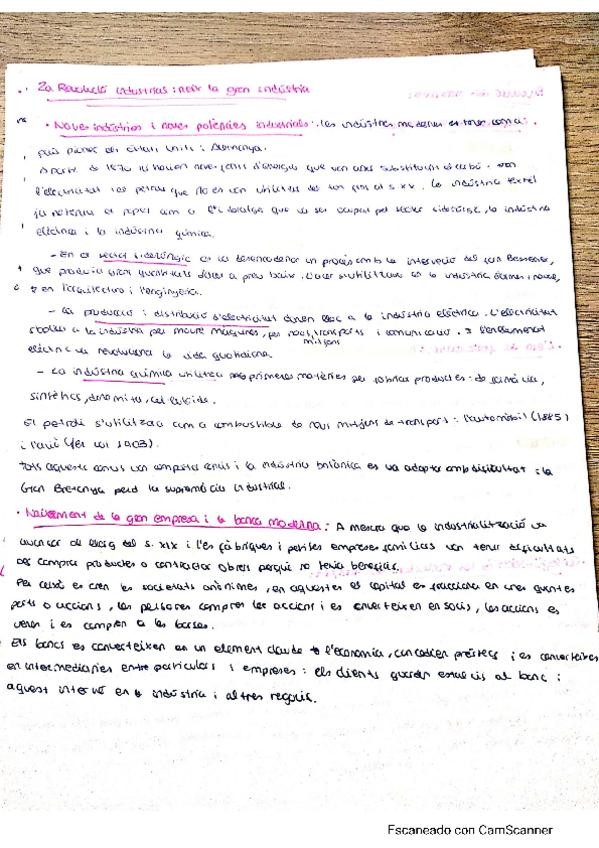 2a Revolució industrial: neix la gran indústria
· Noves indústries i noves potències industrials: les indústries modernes es
països Estats Units i Alemanya.
A partir de 1870 hi hauran noves fonts d'energia que van anar substituint el carbó: van
l'electricitat i el petroli que no es van utilitzar fins al s XX. La indústria tèxtil
ja no tenia el paper com a que va ser ocupat pel sector siderúrgic, la indústria
elèctrica i la indústria química.
- En el sector siderúrgic es va desencadenar un procés amb la intervenció del Bessemer,
que produïa grans quantitats d'acer a preu baix. L'acer s'utilitzava en la indústria d'armes i naval,
i en l'arquitectura i l'enginyeria.
- La producció i distribució d'electricitat donen lloc a la indústria elèctrica. L'electricitat
a la indústria per moure màquines, per nous mitjans transports i comunicació. I l'enllumenat
elèctric va revolucionar la vida quotidiana.
- La indústria química utilitza primeres matèries per fabricar productes: de farmàcia,
sintètics, dinamita, cel·luloide.
El petroli s'utilitzava com a combustible de nous mitjans de transport: l'automòbil (1885)
i l'avió (1903).
Tots aquests canvis van i la indústria britànica es va adaptar amb dificultat i la
Gran Bretanya perd la supremacia industrial.
· Naixement de la gran empresa i la banca moderna: A mesura que la industrialització va
avançar al llarg del s. XIX i les fàbriques i petites empreses familiars van tenir dificultats
per comprar productes o contractar obrers perquè no tenia beneficis.
Per això es creen les societats anònimes, en aquestes el capital es fracciona en unes quantes
parts o accions, les persones compren les accions i es converteixen en socis, les accions es
venen i es compren a les borses.
Els bancs es converteixen en un element clau de l'economia, concedeixen préstecs i es converteixen
en intermediaris entre particulars i empreses: els clients guarden estalvis al banc i
aquest inverteix en la indústria i altres negocis.
Escaneado con CamScanner